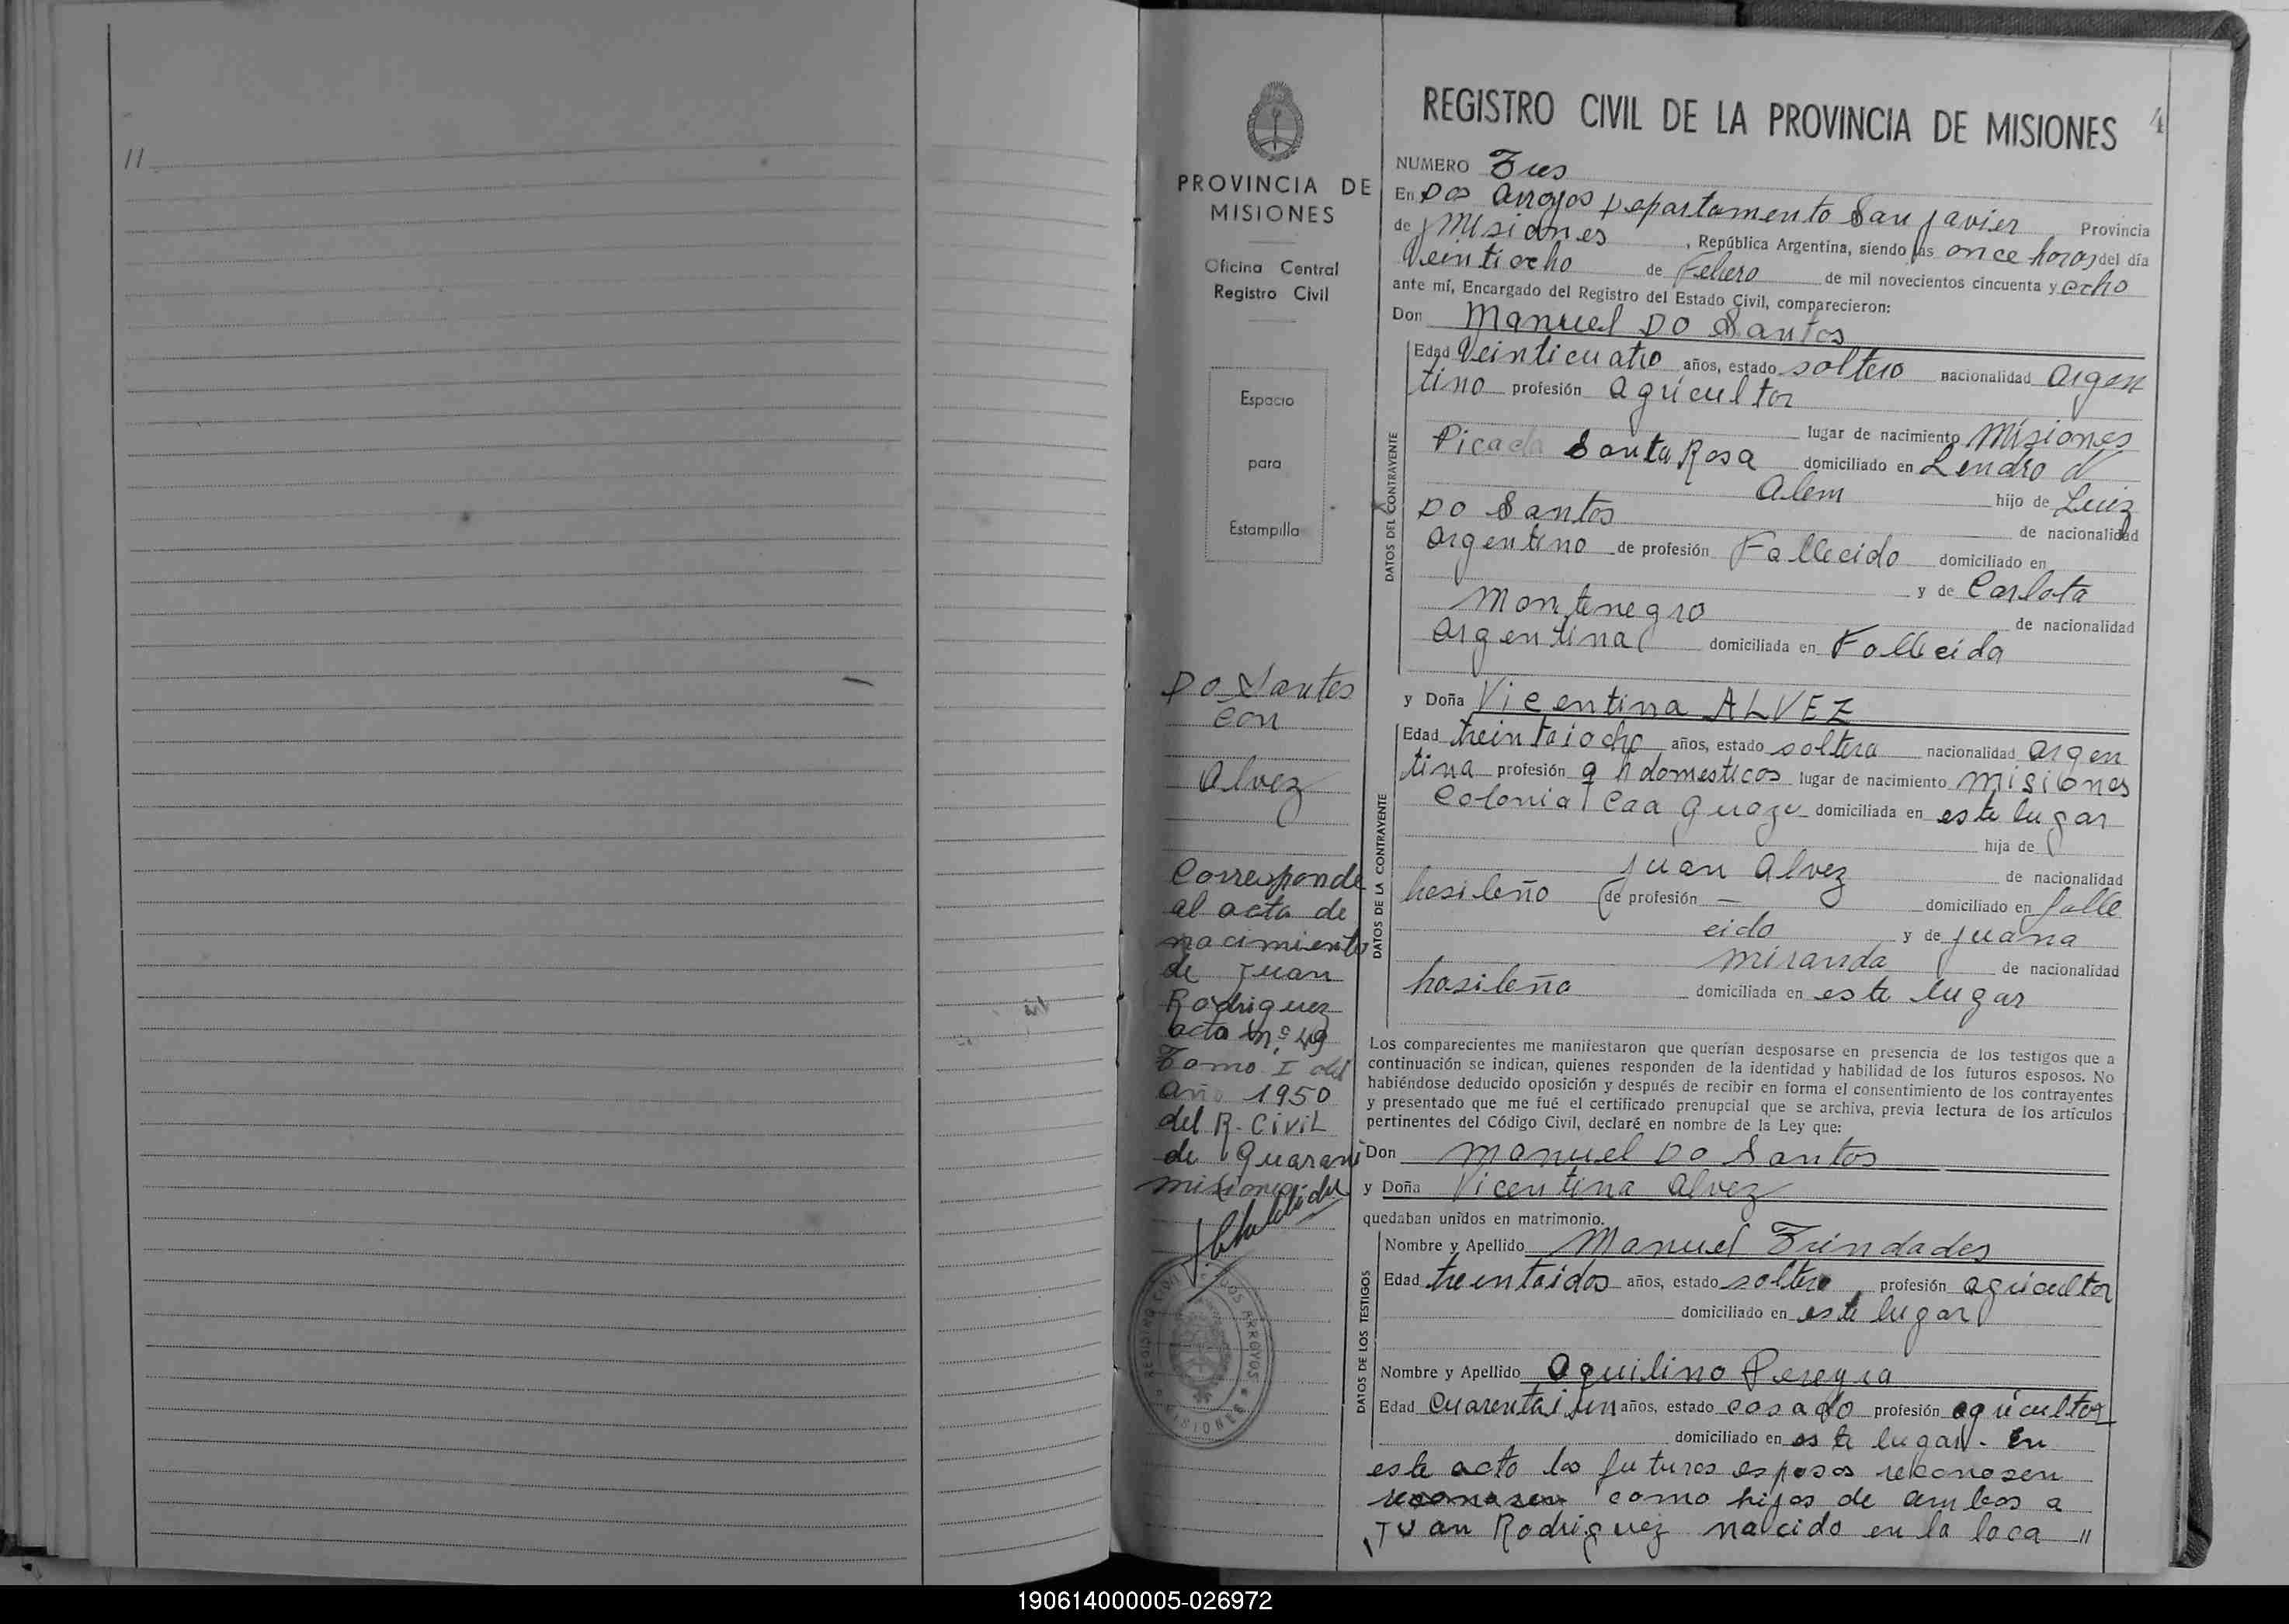 11
PROVINCIA DE
MISIONES
Oficina Central
Registro Civil
Espacio
para
Estampilla
Do Santos
con
Alvez
Corresponde
al acta de
nacimiento
de Juan
Rodriguez
acta Nº 49
Tomo I del
año 1950
del R. Civil
de Guarani
Misiones
REGISTRO CIVIL DOS ARROYOS
MISIONES
REGISTRO CIVIL DE LA PROVINCIA DE MISIONES 4
NUMERO Tres
En Dos Arroyos Departamento San Javier Provincia
de Misiones , República Argentina, siendo las once horas del día
Veintiocho de Febero de mil novecientos cincuenta y ocho
ante mí, Encargado del Registro del Estado Civil, comparecieron:
Don Manuel DO Santos
DATOS DEL CONTRAYENTE
Edad Veinticuatro años, estado soltero nacionalidad argen
tino profesión agricultor
lugar de nacimiento Misiones
Picada Santa Rosa domiciliado en Lendro N
Alem hijo de Luiz
DO Santos de nacionalidad
argentino de profesión Fallecido domiciliado en
y de Carlota
Montenegro de nacionalidad
argentina domiciliada en Fallecida
y Doña Vicentina ALVEZ
DATOS DE LA CONTRAYENTE
Edad treintaiocho años, estado soltera nacionalidad argen
tina profesión q h domesticos lugar de nacimiento Misiones
Colonia Caa Guazu domiciliada en este lugar
hija de
Juan Alvez de nacionalidad
brasileño de profesión — domiciliado en falle
cido y de Juana
Miranda de nacionalidad
brasileña domiciliada en este lugar
Los comparecientes me manifestaron que querían desposarse en presencia de los testigos que a
continuación se indican, quienes responden de la identidad y habilidad de los futuros esposos. No
habiéndose deducido oposición y después de recibir en forma el consentimiento de los contrayentes
y presentado que me fué el certificado prenupcial que se archiva, previa lectura de los artículos
pertinentes del Código Civil, declaré en nombre de la Ley que:
Don Manuel Do Santos
y Doña Vicentina Alvez
quedaban unidos en matrimonio.
DATOS DE LOS TESTIGOS
Nombre y Apellido Manuel Trindades
Edad treintaidos años, estado soltero profesión agricultor
domiciliado en este lugar
Nombre y Apellido Aquilino Pereyra
Edad Cuarentaiun años, estado casado profesión agricultor
domiciliado en este lugar. En
este acto los futuros esposos reconosen
reconosen como hijos de ambos a
Juan Rodriguez nacido en la loca "
190614000005-026972